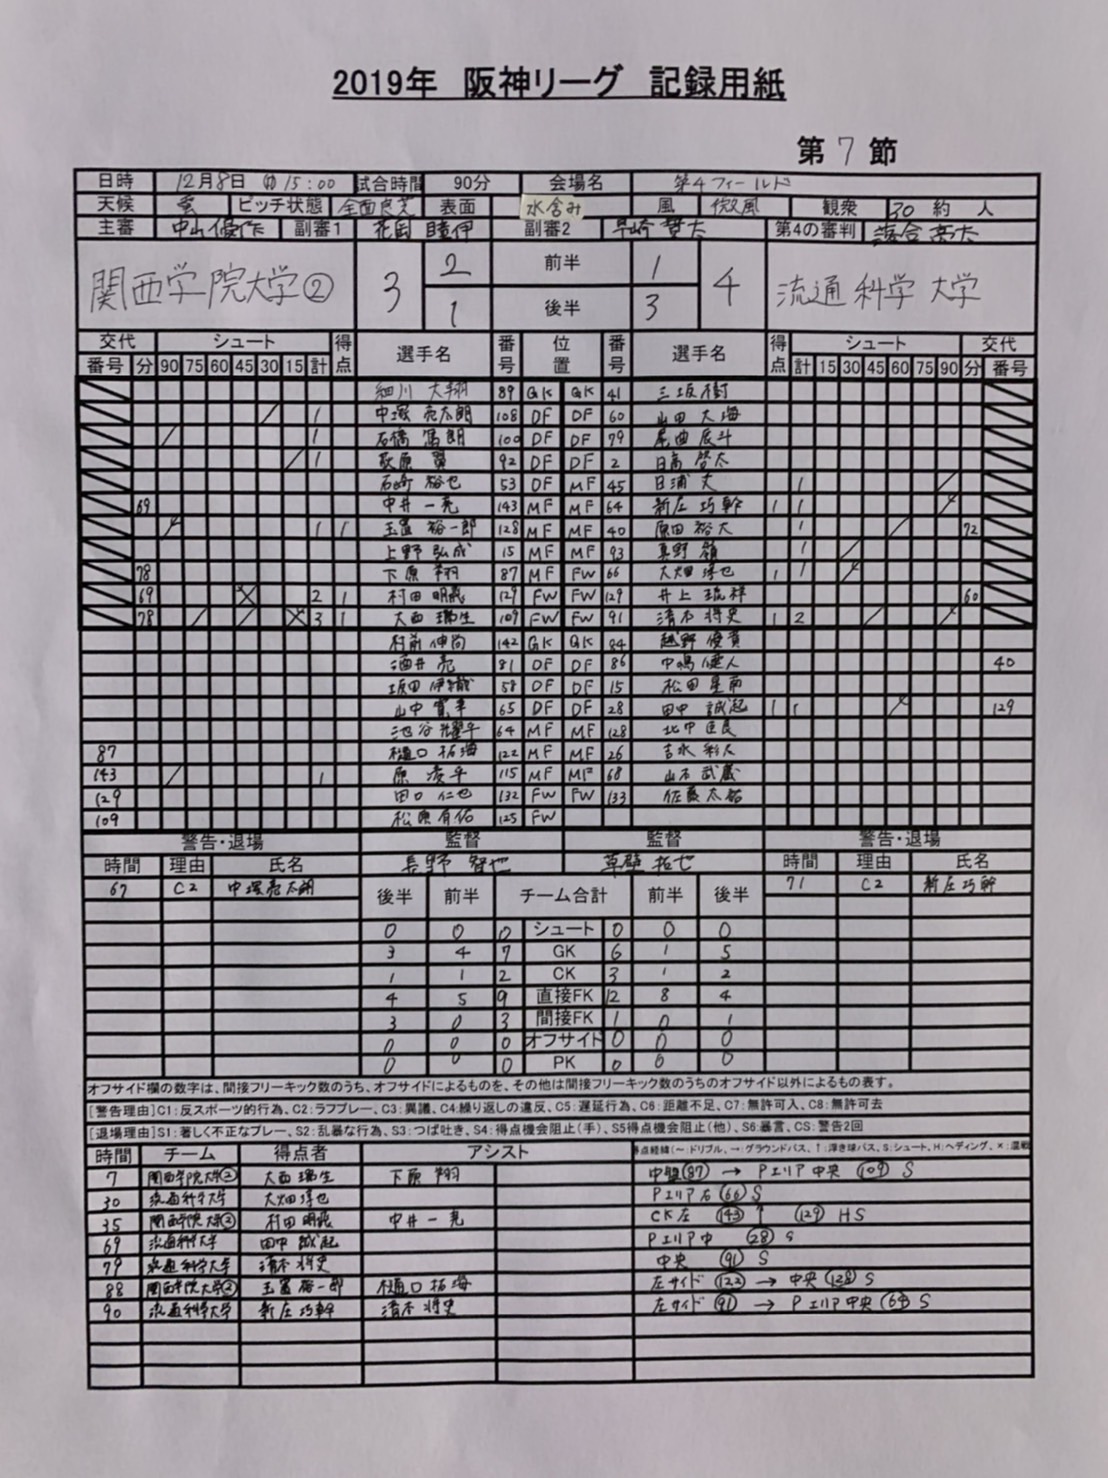 2019年 阪神リーグ 記録用紙
第 7 節
日時 12月8日 (日) 15:00 試合時間 90分 会場名 第4フィールド
天候 雲 ピッチ状態 全面良芝 表面 水含み 風 微風 観衆 30 約 人
主審 中山 優作 副審1 花岡 副審2 早崎 第4の審判 落合 亮太
関西学院大学② 3 2 前半 1 4 流通科学大学
1 後半 3
交代 シュート 得点 選手名 番号 位置 番号 選手名 得点 シュート 交代
番号 分 90 75 60 45 30 15 計 計 15 30 45 60 75 90 分 番号
細川 大翔 89 GK GK 41 三坂 樹
1 中塚 亮太朗 108 DF DF 60 山田 大海
1 石橋 篤朗 100 DF DF 79 尾曲 辰斗
1 荻原 翼 92 DF DF 2 日高 啓太
石崎 裕也 53 DF MF 45 日浦 丈 1
69 中井 一亮 143 MF MF 64 新庄 巧幹 1 1
1 1 玉置 裕一郎 128 MF MF 40 原田 裕大 1 72
上野 弘成 15 MF MF 93 真野 嶺 1
78 下原 翔 87 MF FW 66 大畑 淳也 1 1
69 2 1 村田 明飛 129 FW FW 129 井上 琉祥 60
78 3 1 大西 瑞生 109 FW FW 91 清本 将史 1 2
村前 伸尚 142 GK GK 84 越野 優貴
酒井 亮 81 DF DF 86 中嶋 健人 40
坂田 伊織 58 DF DF 15 松田 星南
山中 寛幸 65 DF DF 28 田中 誠起 1 1 129
池谷 耀平 64 MF MF 128 北中 匡良
87 樋口 拓海 122 MF MF 26 吉永
143 1 原 凌平 115 MF MF 68 山本 武蔵
129 田口 仁也 132 FW FW 133 佐藤 太祐
109 松原 有佑 125 FW
警告・退場 監督 監督 警告・退場
時間 理由 氏名 長野 智也 草壁 拓也 時間 理由 氏名
67 C2 中塚亮太朗 後半 前半 チーム合計 前半 後半 71 C2 新庄巧幹
0 0 0 シュート 0 0 0
3 4 7 GK 6 1 5
1 1 2 CK 3 1 2
4 5 9 直接FK 12 8 4
3 0 3 間接FK 1 0 1
0 0 0 オフサイド 0 0 0
0 0 0 PK 0 0 0
オフサイド欄の数字は、間接フリーキック数のうち、オフサイドによるものを、その他は間接フリーキック数のうちのオフサイド以外によるもの表す。
[警告理由]C1:反スポーツ的行為、C2:ラフプレー、C3:異議、C4:繰り返しの違反、C5:遅延行為、C6:距離不足、C7:無許可入、C8:無許可去
[退場理由]S1:著しく不正なプレー、S2:乱暴な行為、S3:つば吐き、S4:得点機会阻止(手)、S5得点機会阻止(他)、S6:暴言、CS:警告2回
時間 チーム 得点者 アシスト 得点経緯(~:ドリブル、→:グラウンドパス、↑:浮き球パス、S:シュート、H:ヘディング、×:混戦
7 関西学院大学② 大西 瑞生 下原 翔 中盤(87) → Pエリア中央 (109) S
30 流通科学大学 大畑 淳也 Pエリア右 (66) S
35 関西学院大学② 村田 明飛 中井 一亮 CK左 (143) ↑ (129) HS
69 流通科学大学 田中 誠起 Pエリア中 (28) S
79 流通科学大学 清本 将史 中央 (91) S
88 関西学院大学② 玉置 裕一郎 樋口 拓海 左サイド (122) → 中央(128) S
90 流通科学大学 新庄 巧幹 清本 将史 左サイド (91) → Pエリア中央 (64) S